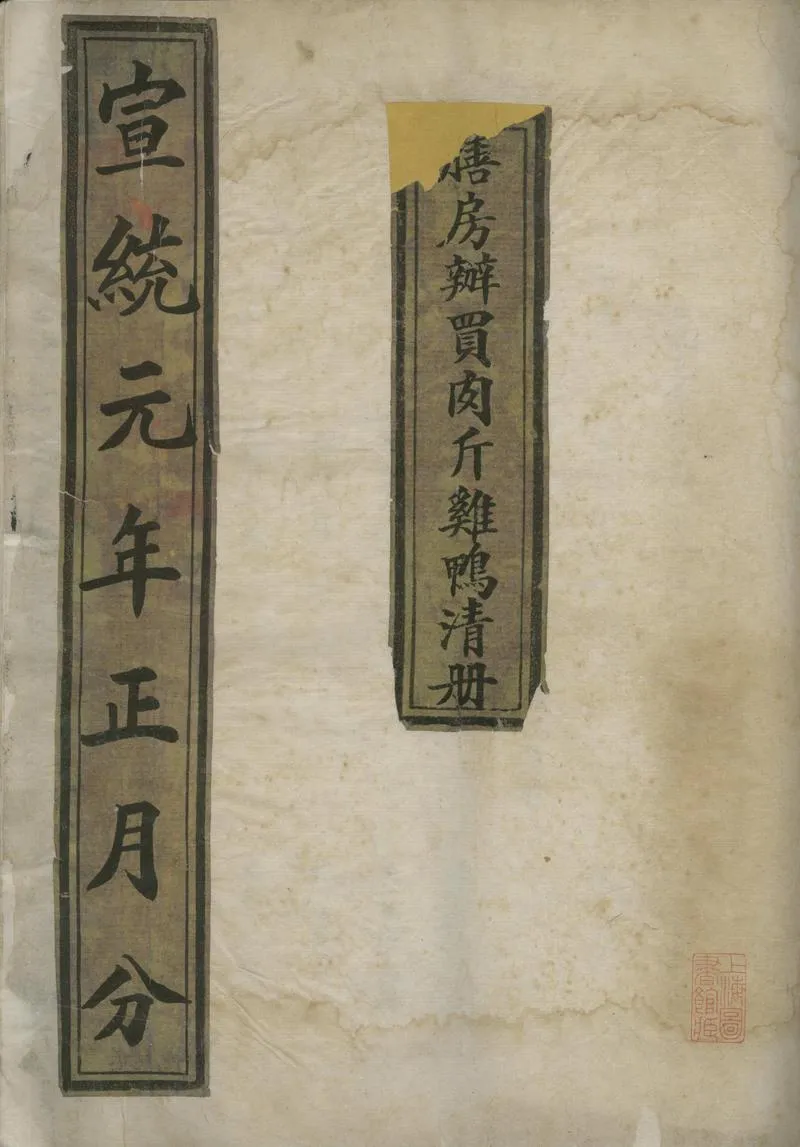 膳房辦買肉斤雞鴨清册
宣統元年正月分
上海圖
書館藏